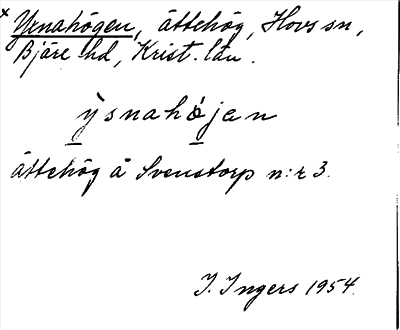 x Yxnahögen, ättehög, Hovs sn,
Bjäre hd, Krist. län.
ỳsnahǿjen
ättehög å Svenstorp n:r 3.
I. Ingers 1954.